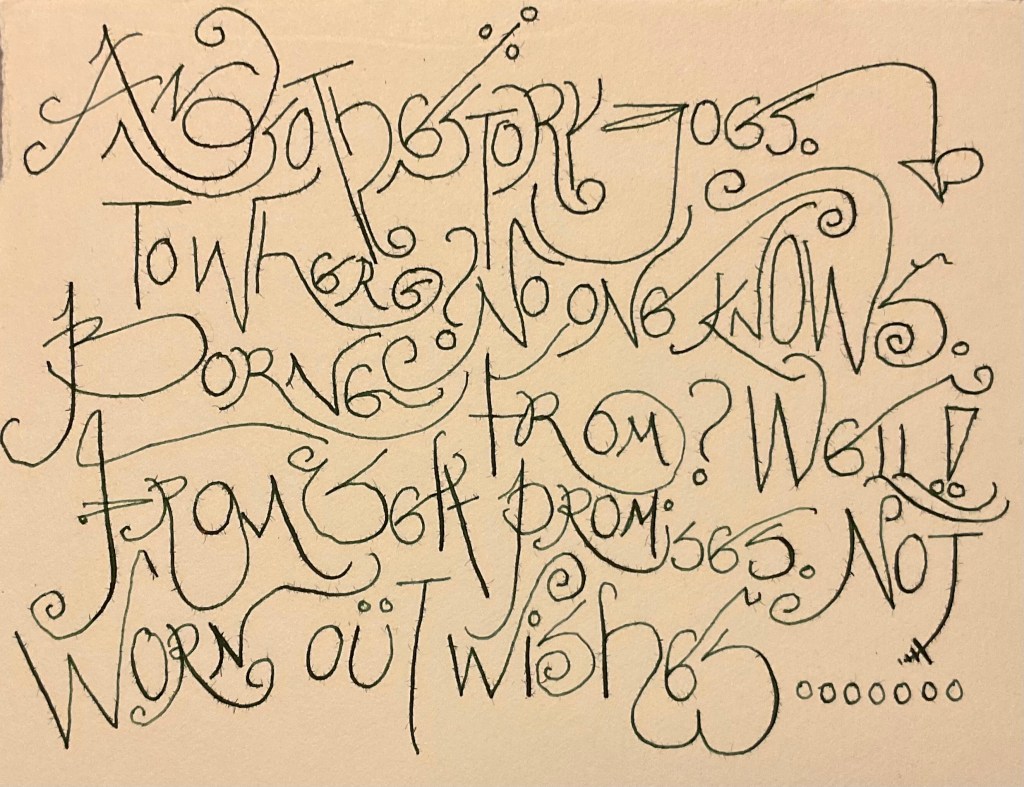 AND SO THE STORY GOES.
TO WHERE? NO ONE KNOWS.
BORNE FROM? WELL!
FROM PROMISES. NOT
WORN OÜT WISHES ooooooo